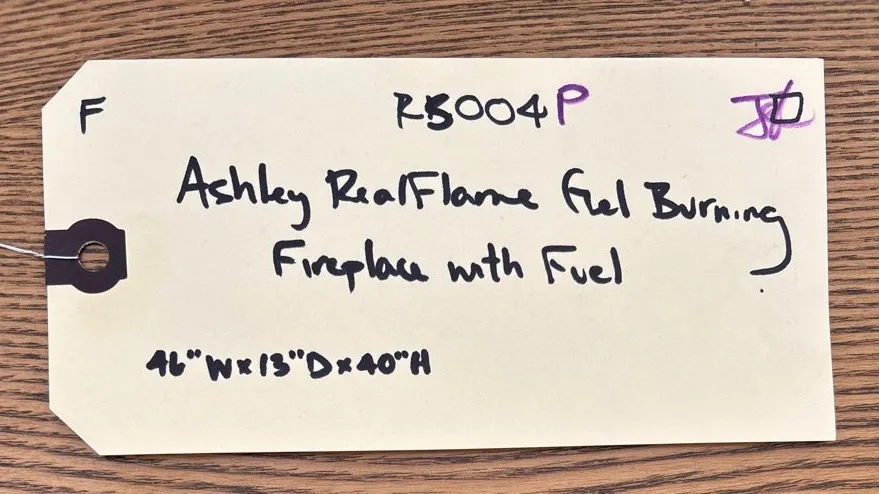 F R5004P
Ashley RealFlame Fuel Burning
Fireplace with Fuel
46"W x 13"D x 40"H